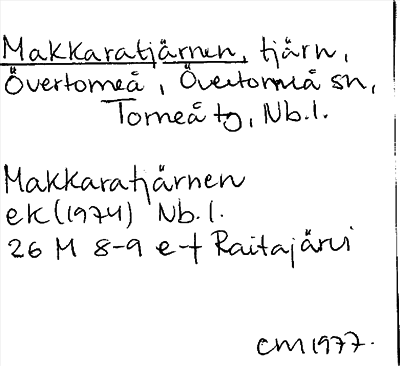 Makkaratjärnen, tjärn,
Övertorneå, Övertorneå sn,
Torneå tg, Nb.l.
Makkaratjärnen
ek (1974) Nb.l.
26 M 8-9 e-f Raitajärvi
CM 1977.